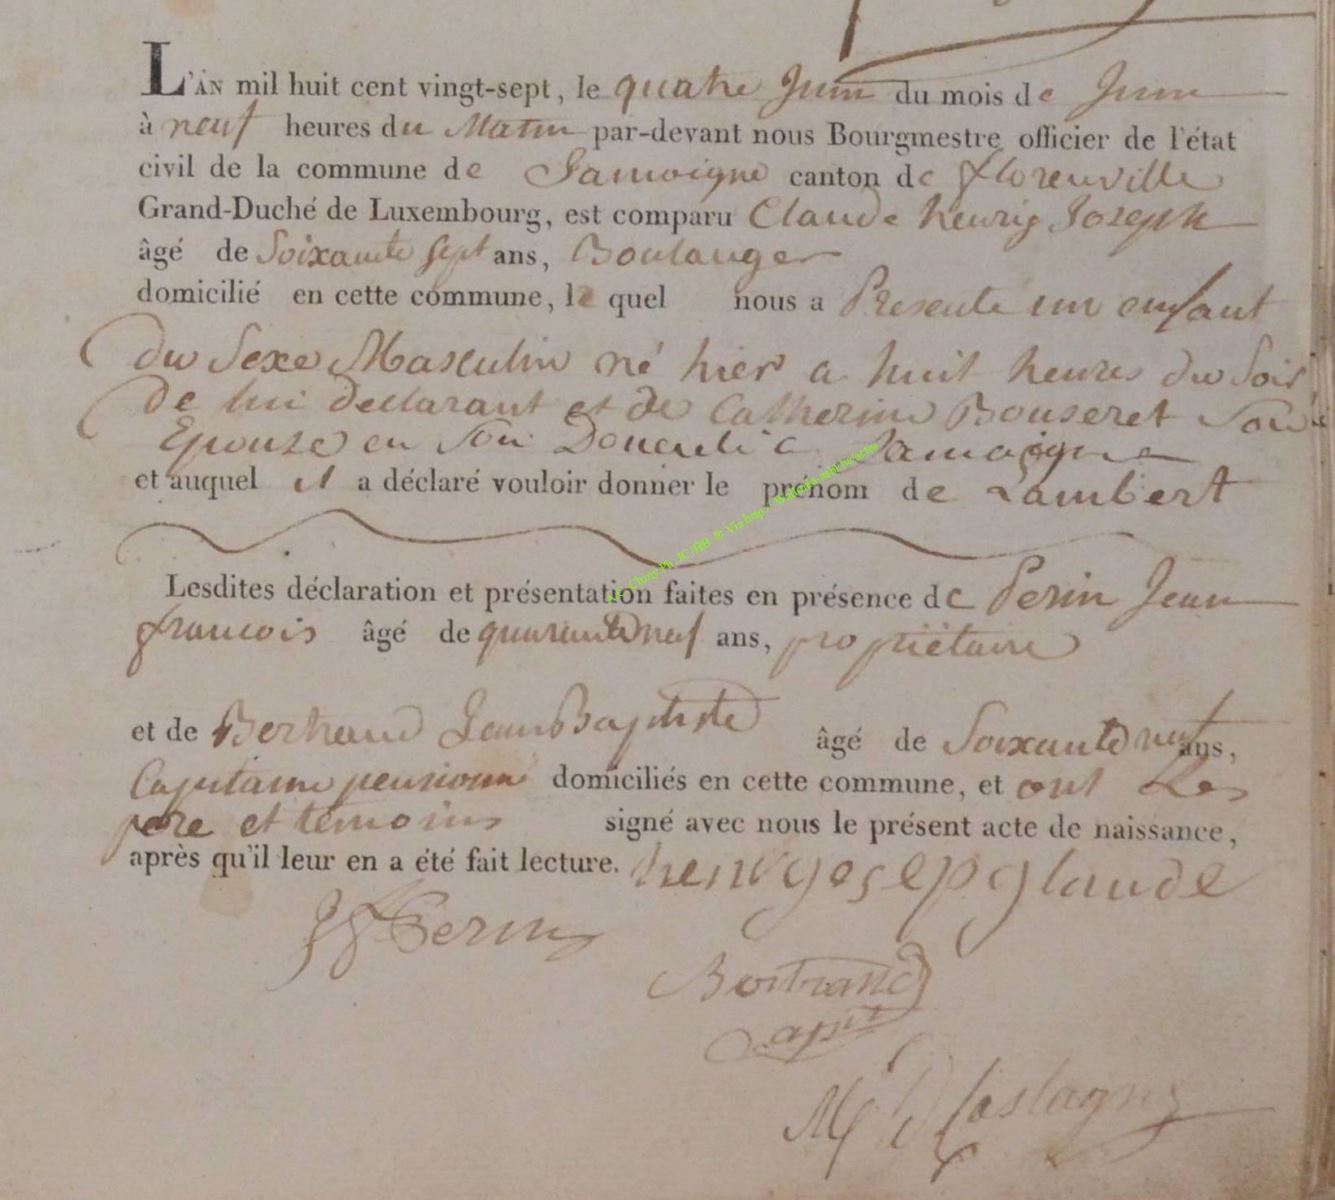 L'AN mil huit cent vingt-sept, le quatre Juin du mois de Juin
à neuf heures du Matin par-devant nous Bourgmestre officier de l'état
civil de la commune de Jamoigne canton de florenville
Grand-Duché de Luxembourg, est comparu Claude henrig Joseph
âgé de Soixante Sept ans, Boulanger
domicilié en cette commune, le quel nous a Presenté un enfant
du Sexe Masculin né hier a huit heures du Soir
de lui declarant et de Catherine Bouseret Son
Epouse en Son Domicile a Jamoigne
et auquel il a déclaré vouloir donner le prénom de Lambert
Lesdites déclaration et présentation faites en présence de Perin Jean
francois âgé de quarante neuf ans, propriétaire
et de Bertrand Jean Baptiste âgé de Soixante neuf ans,
Capitaine pensionné domiciliés en cette commune, et ont Les
pere et temoins signé avec nous le présent acte de naissance,
après qu'il leur en a été fait lecture. henry gosep glaude
JF Perin
Bertrand
capit